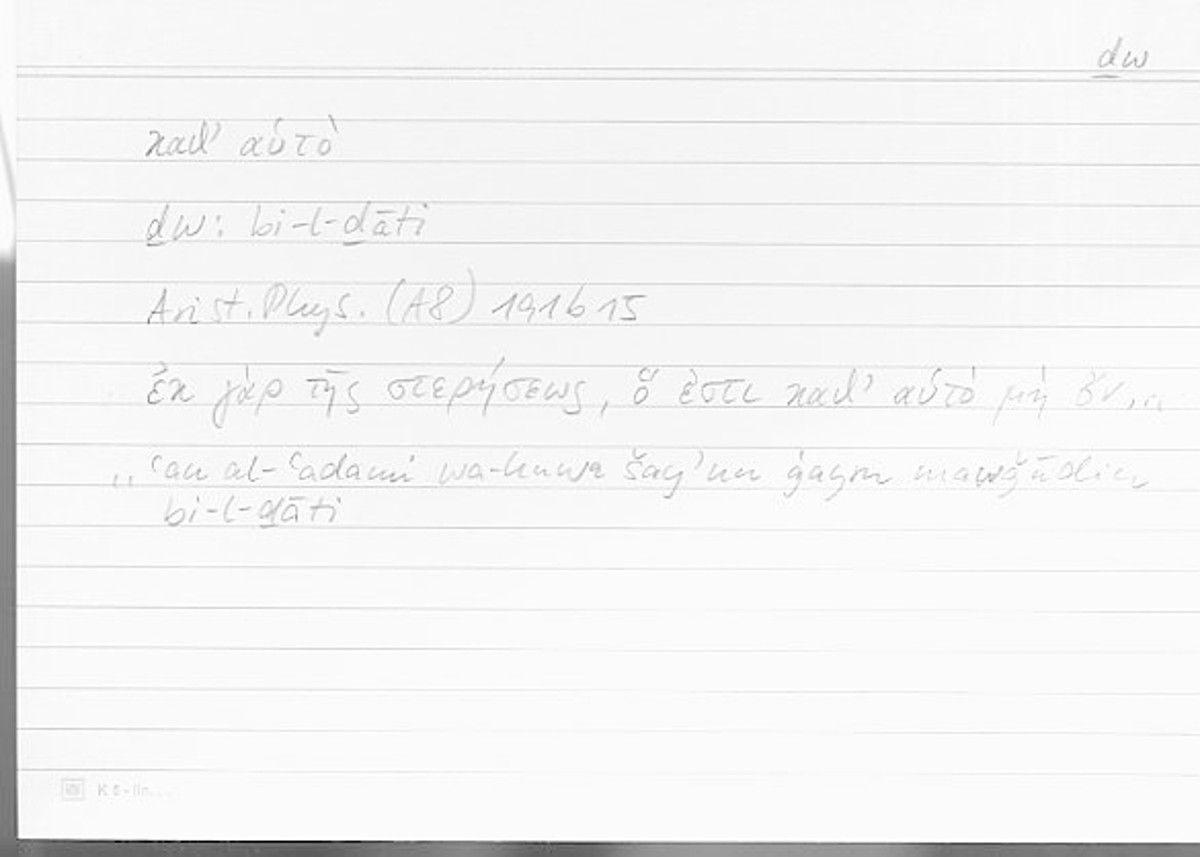 ḏw
καθ' αὑτὸ
ḏw: bi-l-ḏāti
Arist. Phys. (A8) 191b15
ἐκ γὰρ τῆς στερήσεως, ὅ ἐστι καθ' αὑτὸ μὴ ὄν,..
,, ʿan al-ʿadami wa-huwa šayʾun ġayru mawǧūdin
bi-l-ḏāti